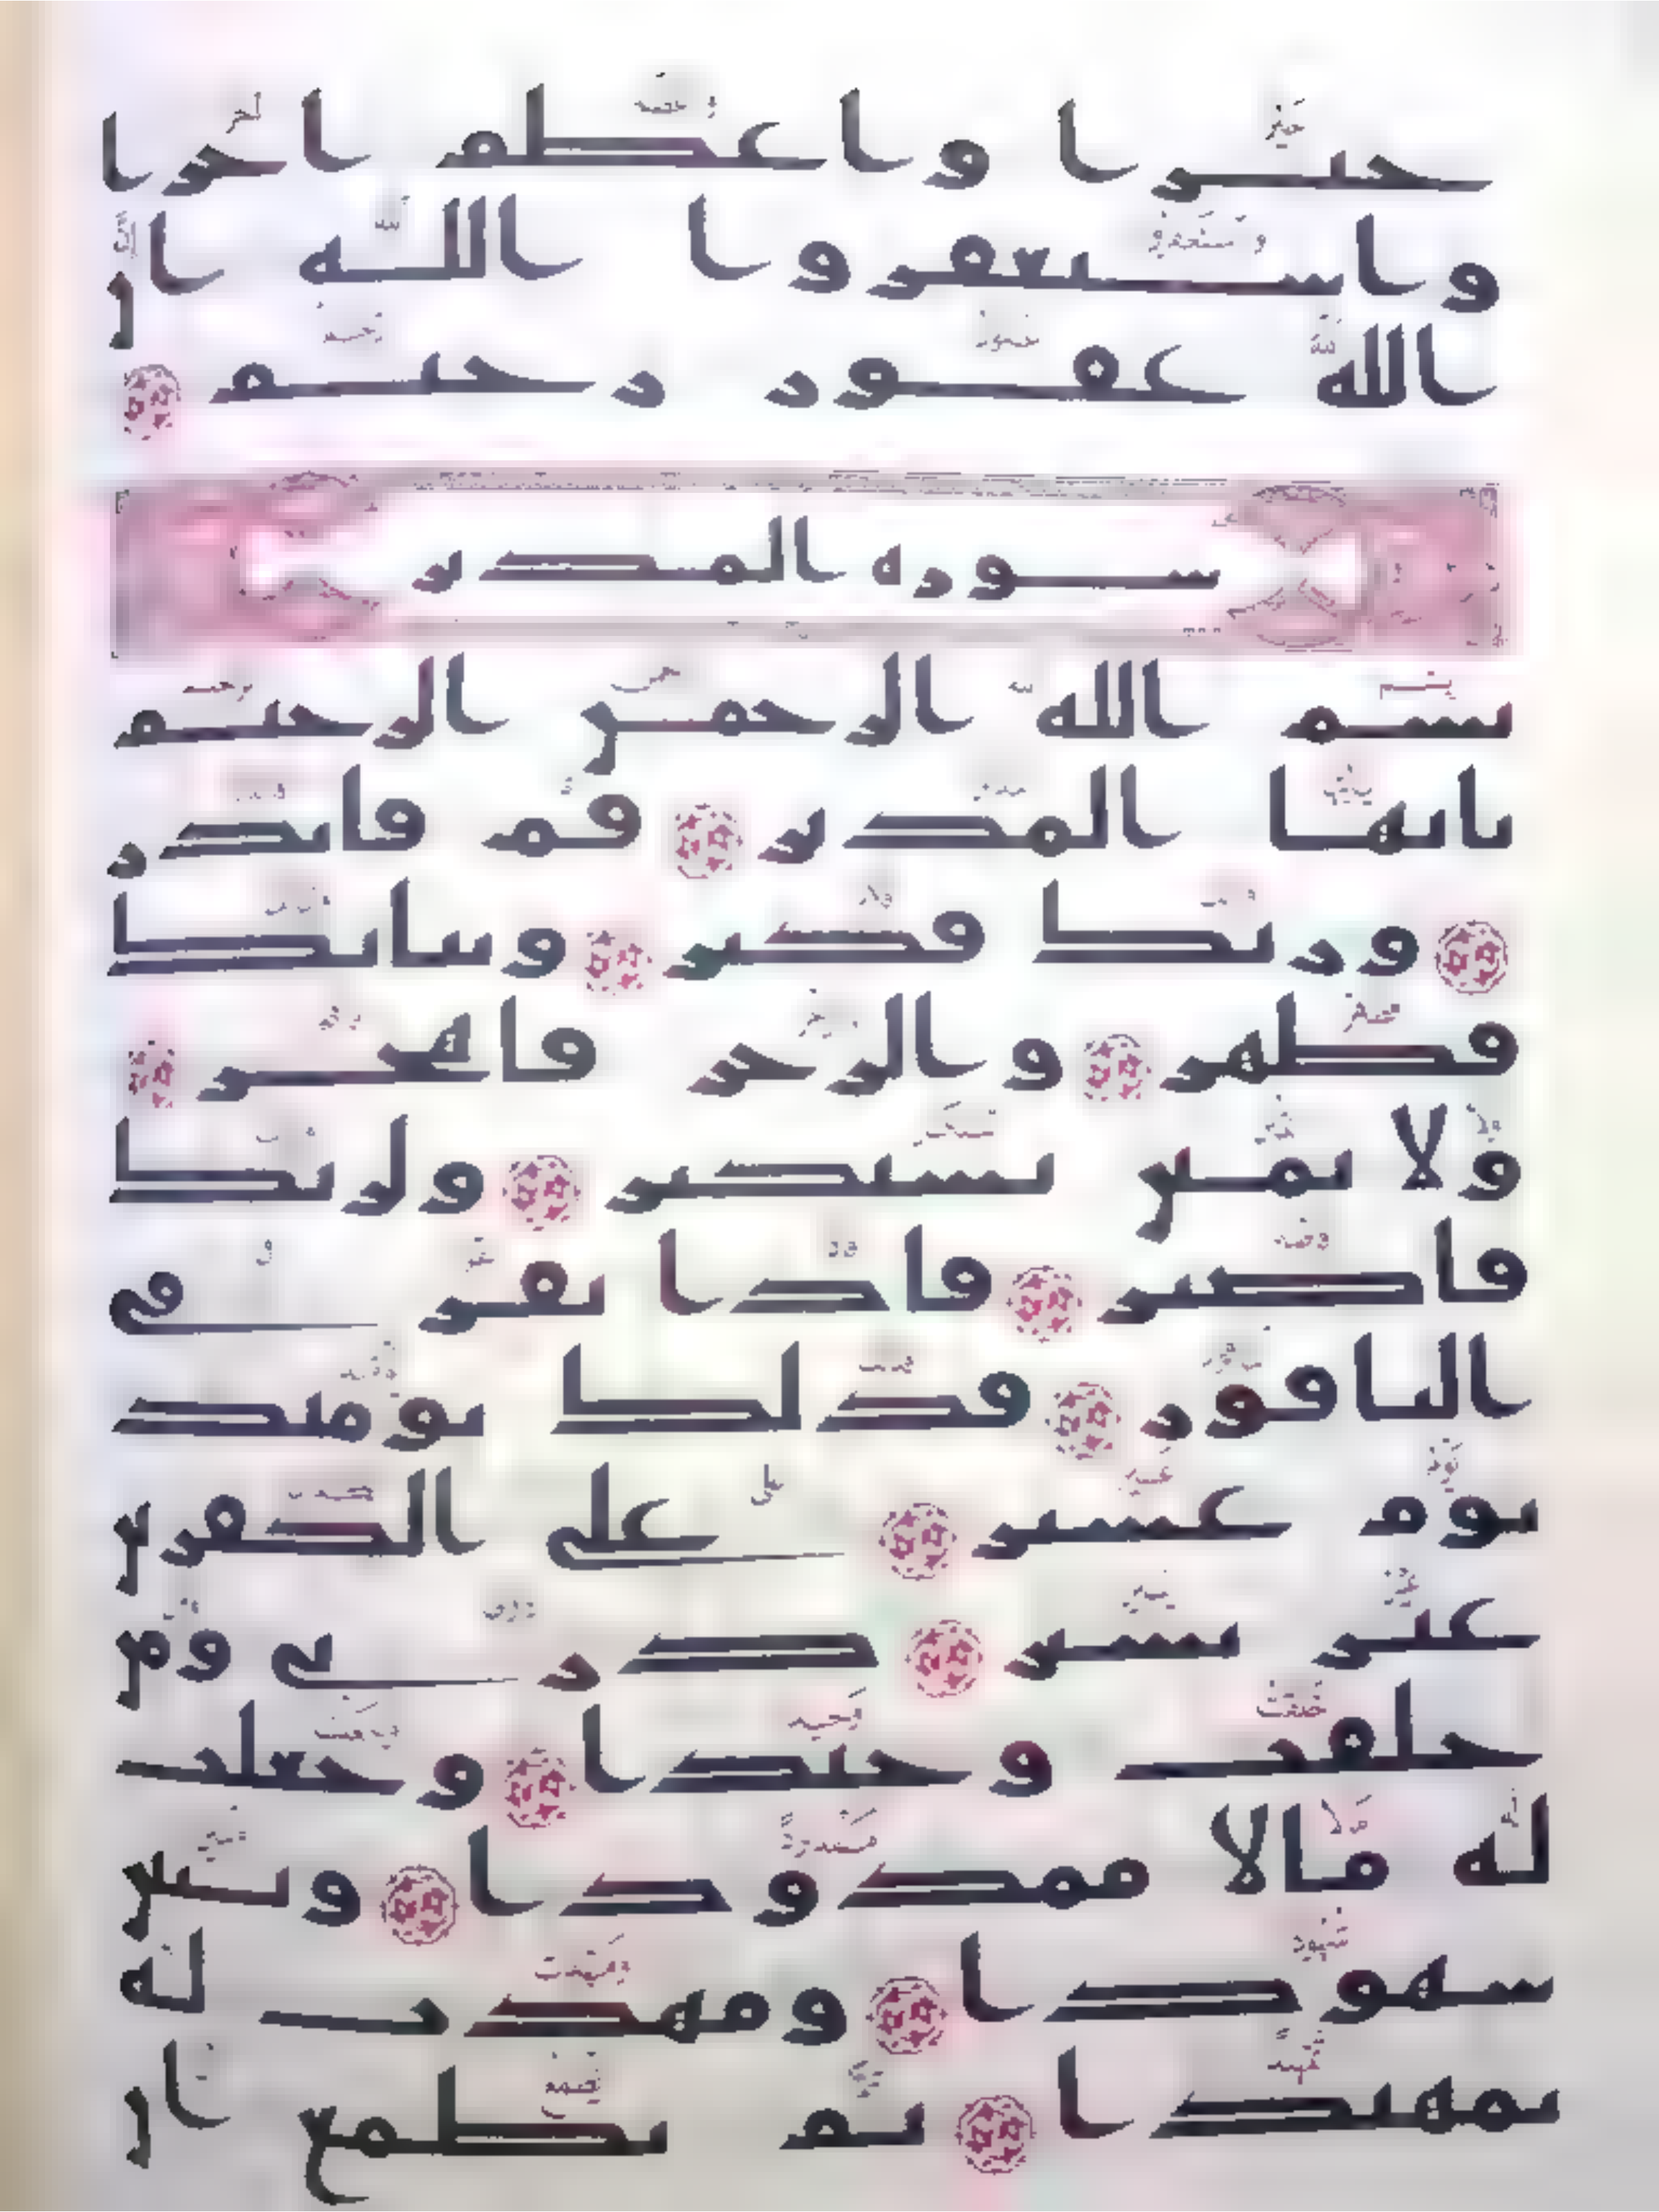 خيرا واعظم اجرا
واستغفروا الله ان
الله غفور رحيم
سورة المدثر
بسم الله الرحمن الرحيم
يايها المدثر قم فانذر
وربك فكبر وثيابك
فطهر والرجز فاهجر
ولا تمنن تستكثر ولربك
فاصبر فاذا نقر في
الناقور فذلك يومئذ
يوم عسير على الكفرين
غير يسير ذرني ومن
خلقت وحيدا وجعلت
له مالا ممدودا وبنين
شهودا ومهدت له
تمهيدا ثم يطمع ان